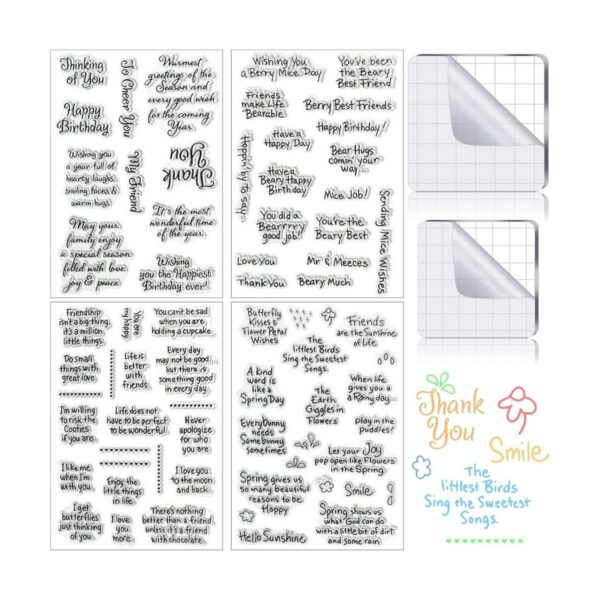 Thinking
of You
To Cheer You
Warmest
greetings of the
Season and
every good wish
for the coming
Year.
Happy
Birthday
Thank
You
My Friend
Wishing you
a year full of
hearty laughs,
smiling faces &
warm hugs
It's the most
wonderful time
of the year.
May your
family enjoy
a special season
filled with love,
joy & peace
Wishing
you the Happiest
Birthday ever!
Wishing You
a Berry Mice Day
You've been
the Beary
Best Friend
Friends
make Life
Bearable
Berry Best Friends
Happy Birthday!
Have a
Happy Day
Bear Hugs
comin' your
way...
Happy by to say...
Have a
Beary Happy
Birthday
Mice Job!
Sending Mice Wishes
You did a
Bearrrry
good job!
You're the
Beary Best
Love You
Mr & Meeces
Thank You
Beary Much
Friendship
isn't a big thing,
it's a million
little things.
You are
my happy
You can't be sad
when you are
holding a cupcake.
Do small
things with
great love.
Life is
better
with
friends.
Every day
may not be good,
but there is
something good
in every day.
I'm willing
to risk the
Cooties
if you are.
Life does not
have to be perfect
to be wonderful.
Never
apologize
for who
you are.
I like me
when I'm
with you.
Enjoy the
little things
in life.
I love you
to the moon
and back.
I get
butterflies
just thinking
of you.
I love
you
more.
There's nothing
better than a friend,
unless it's a friend
with chocolate.
Butterfly
Kisses &
Flower Petal
Wishes
Friends
are the Sunshine
of Life
The
littlest Birds
Sing the Sweetest
Songs.
A kind
word is
like a
Spring Day
When life
gives you a
Rainy day...
The
Earth
Giggles in
Flowers
play in the
puddles!
Every Bunny
needs
Some bunny
sometimes
Let your Joy
pop open like Flowers
in the Spring
Spring gives us
so many beautiful
reasons to be
Happy
Smile
Spring shows us
what God can do
with a little bit of dirt
and some rain
Hello Sunshine
Thank
You
Smile
The
littlest Birds
Sing the Sweetest
Songs.